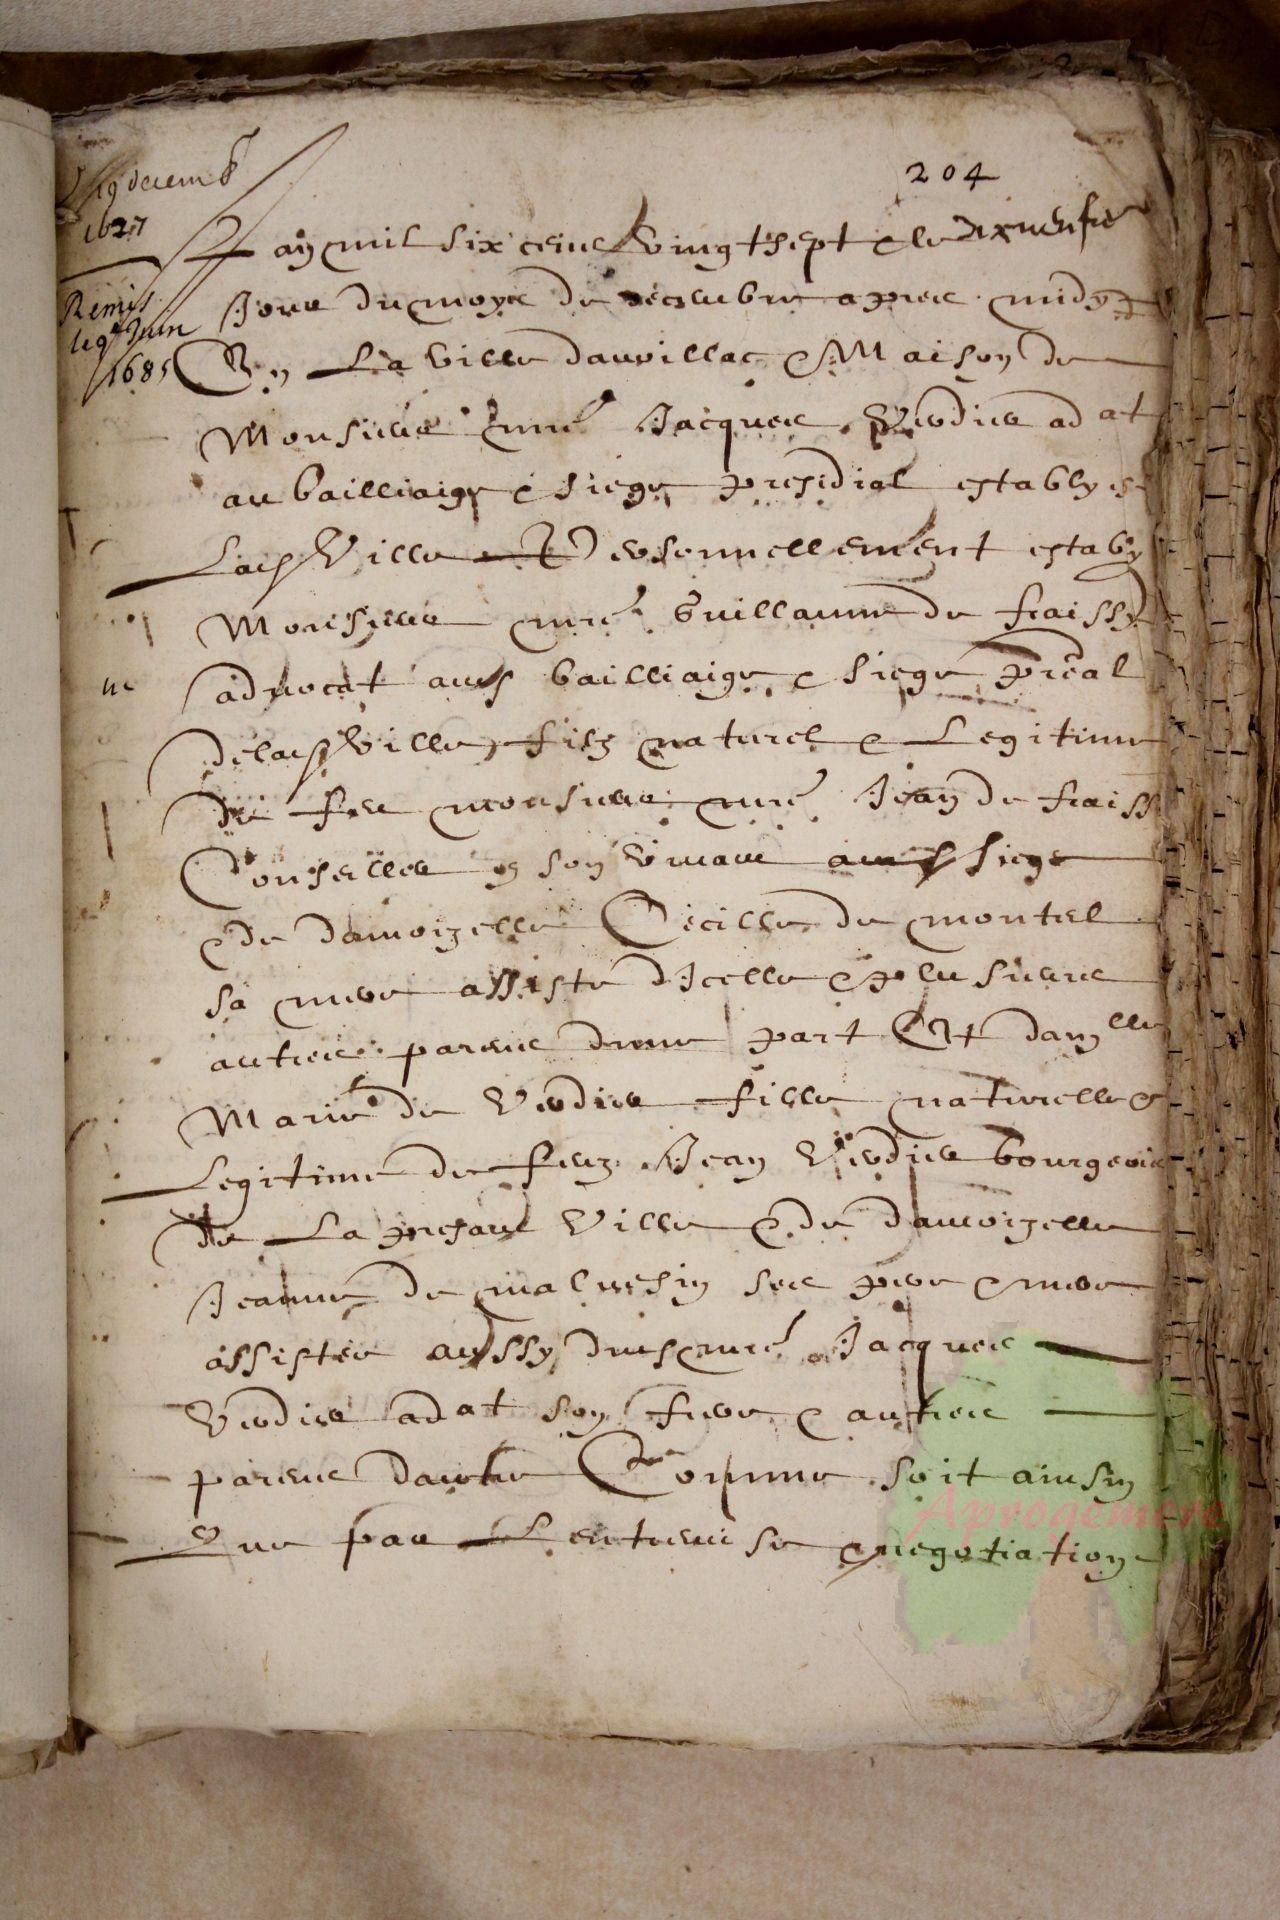 19 decemb
1627
Remis
le 9e Juin
1685
204
L an mil six cens vingt sept & le dixneufie
Jour du moys de decembre apres midy
En La Ville daurillac & Maison de
Monsieur mre Jacques Verdier ad at
au bailliaige & siege presidial estably en
Lad Ville Personnellement estably
Monsieur mre Guillaume de fraissy
advocat aud bailliaige & siege preal
de lad Ville filz naturel & Legitime
de feu monsieur mre Jean de fraiss
Conseiller en son vivant aud siege
& de damoizelle Cecille de montel
sa mere assiste dIcelle & plusieurs
autres parens dune part Et dam lle
Marie de Verdier fille naturelle &
Legitime de feuz Jean Verdier bourgeois
de La presant Ville & de damoizelle
Jeanne de malvesin ses pere & mere
assistee aussy dud mre Jacques
Verdier ad at son frere & autres
parens dautre Comme soit ainsin
Que par Lentremise & negotiation
Aprogemere